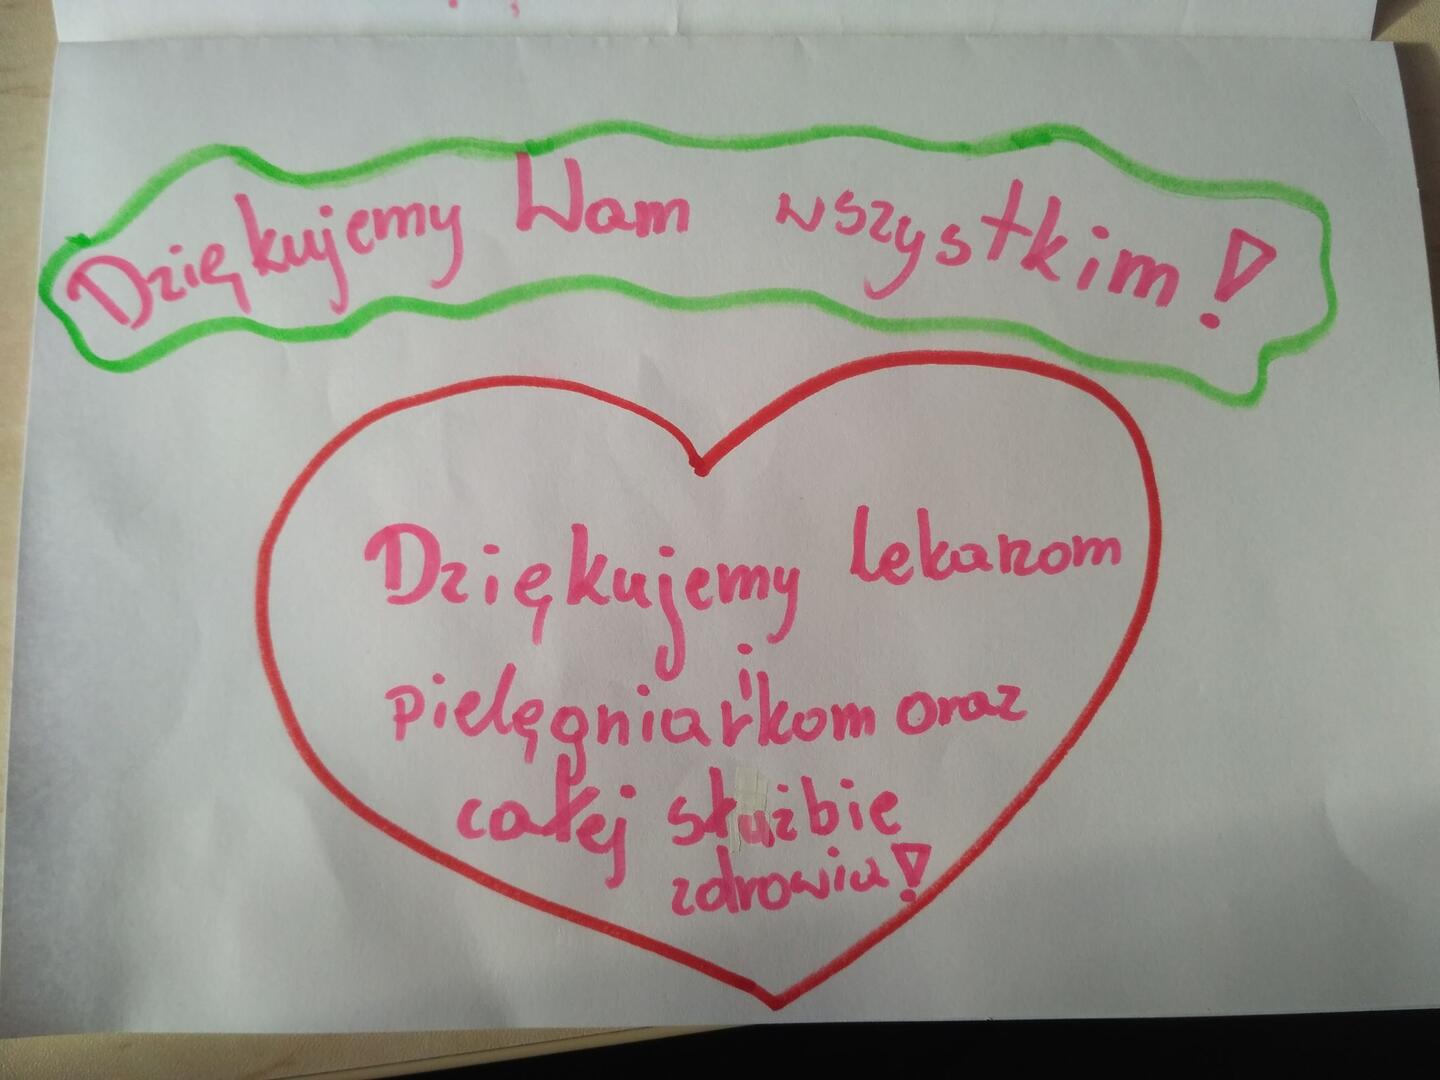 Dziękujemy Wam wszystkim!
Dziękujemy lekarzom
i
pielęgniarkom oraz
całej służbie
zdrowia!